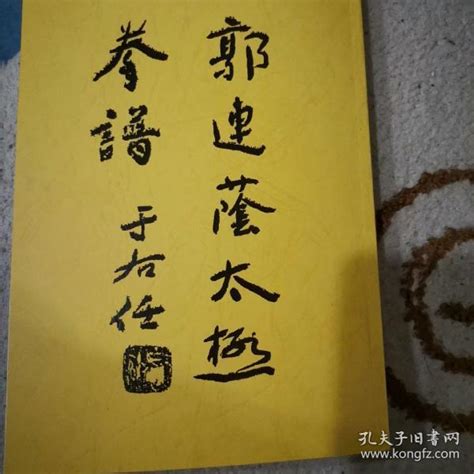 郭連蔭太極
拳譜
于右任
孔夫子旧书网
www.kongfz.com